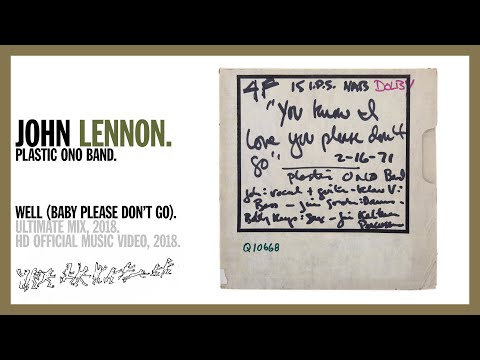 JOHN LENNON.
PLASTIC ONO BAND.
WELL (BABY PLEASE DON'T GO).
ULTIMATE MIX, 2018.
HD OFFICIAL MUSIC VIDEO, 2018.
4F 15 I.P.S. NAB DOLBY
"You know I
love you please don't
go"
2-16-71
Plastic ONO Band
vocal + guitar - Klaus V:
Bass - Jim Gordon: Drums -
Bobby Keys: Sax - Jim
Q10668